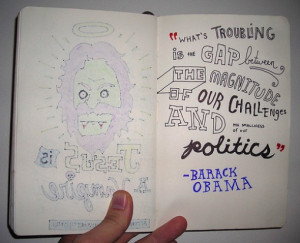 JESUS is
A Vampire
"WHAT'S TROUBLING
is the GAP between
THE MAGNITUDE
OF OUR CHALLENGES
AND the smallness
of our
politics"
-BARACK
OBAMA